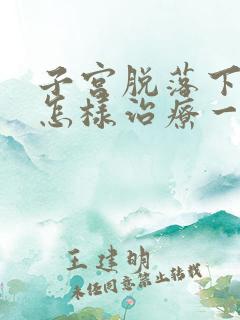 子宫脱落下
怎样治疗一
王建明
未经同意禁止转载